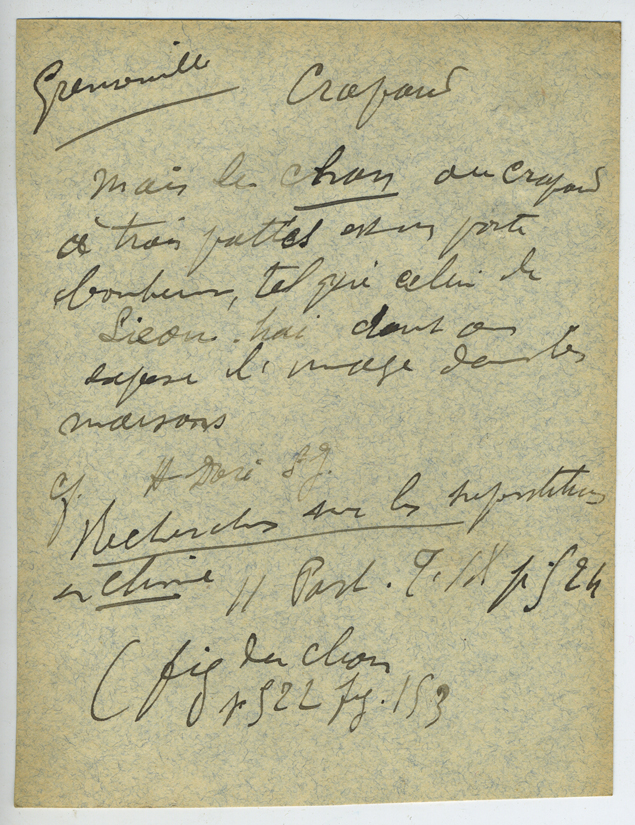 Grenouille Crapaud
Mais le chan ou crapaud
à trois pattes est un porte
bonheur, tel que celui de
Lieou-hai dont on
expose l'image dans les
maisons
cf. H Doré S.J.
Recherches sur les superstitions
en Chine II Part. T. IX p. 524
(fig du chan
p 522 fig. 153